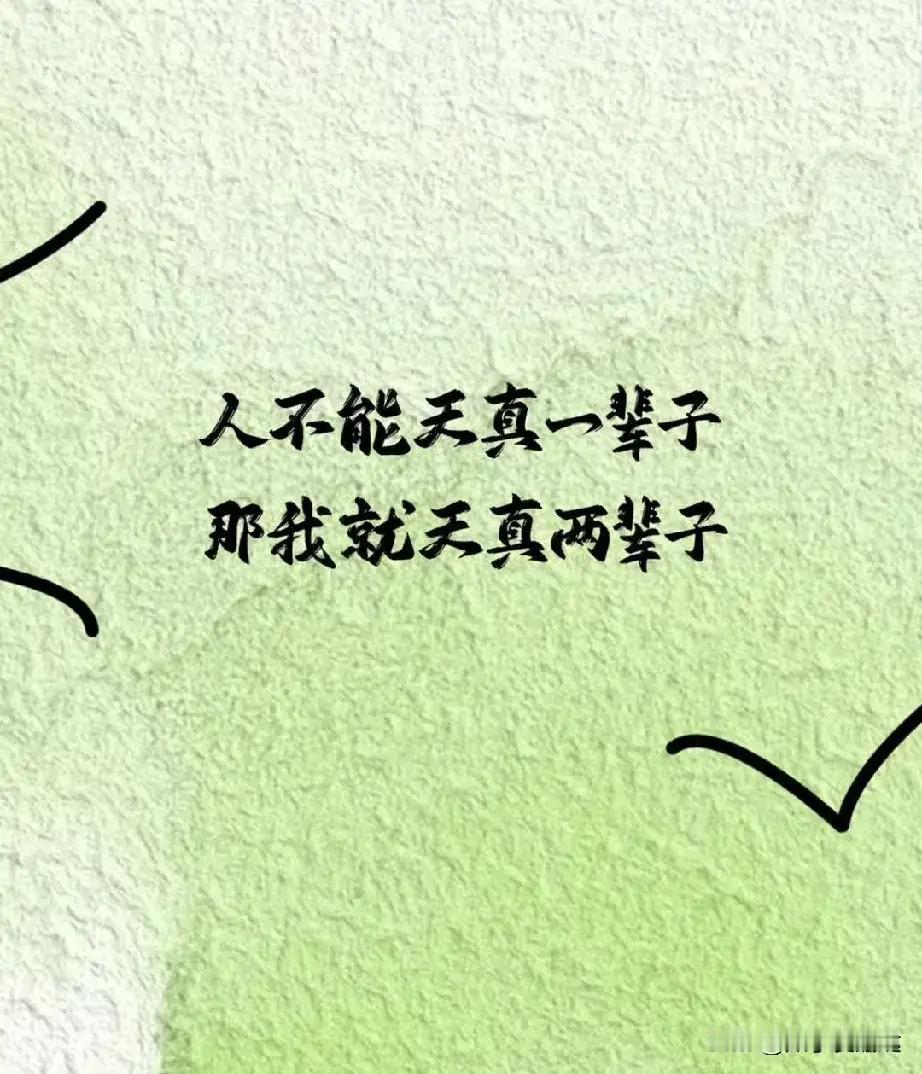 人不能天真一辈子
那我就天真两辈子